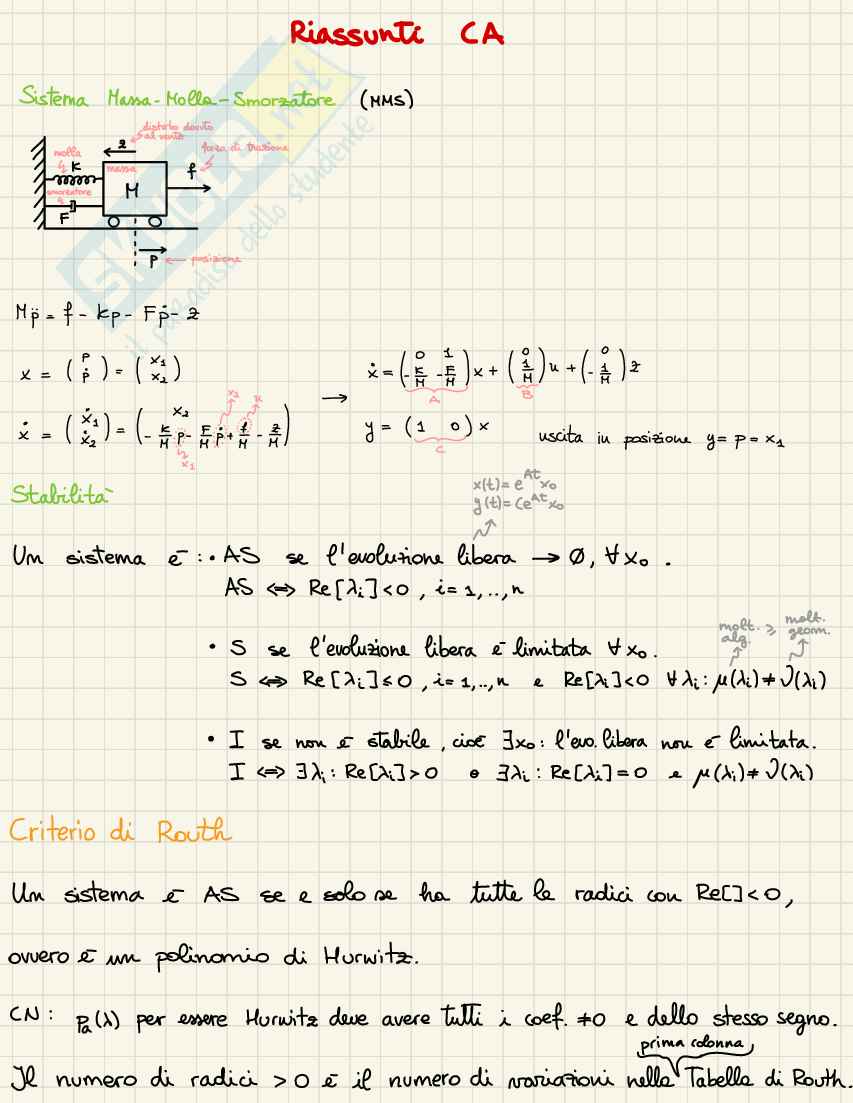 Riassunti CA
Sistema Massa-Molla-Smorzatore (MMS)
disturbo dovuto
al vento
z
forza di trazione
molla
K
massa
f
smorzatore
M
F
p
posizione
SKUOLA.net
il paradiso dello studente
Mp̈ = f - kp - Fṗ - z
x = (p ṗ) = (x₁ x₂)
ẋ = (ẋ₁ ẋ₂) = (x₂ -K/M p - F/M ṗ + f/M - z/M)
x₂ u
x₁
→ ẋ = (0 1 -K/M -F/M) x + (0 1/M) u + (0 -1/M) z
A B
y = (1 0) x uscita in posizione y = p = x₁
C
Stabilità
x(t) = e^At x₀
y(t) = Ce^At x₀
Un sistema è: • AS se l'evoluzione libera → Ø, ∀x₀.
AS ⇔ Re[λi]<0, i=1,..,n
molt. alg. ≥ molt. geom.
• S se l'evoluzione libera è limitata ∀x₀.
S ⇔ Re[λi]≤0, i=1,..,n e Re[λi]<0 ∀λi: μ(λi)≠ν(λi)
• I se non è stabile, cioè ∃x₀: l'evo. libera non è limitata.
I ⇔ ∃λi: Re[λi]>0 o ∃λi: Re[λi]=0 e μ(λi)≠ν(λi)
Criterio di Routh
Un sistema è AS se e solo se ha tutte le radici con Re[]<0,
ovvero è un polinomio di Hurwitz.
CN: Pa(λ) per essere Hurwitz deve avere tutti i coef. ≠0 e dello stesso segno.
prima colonna
Il numero di radici >0 è il numero di variazioni nella Tabella di Routh.